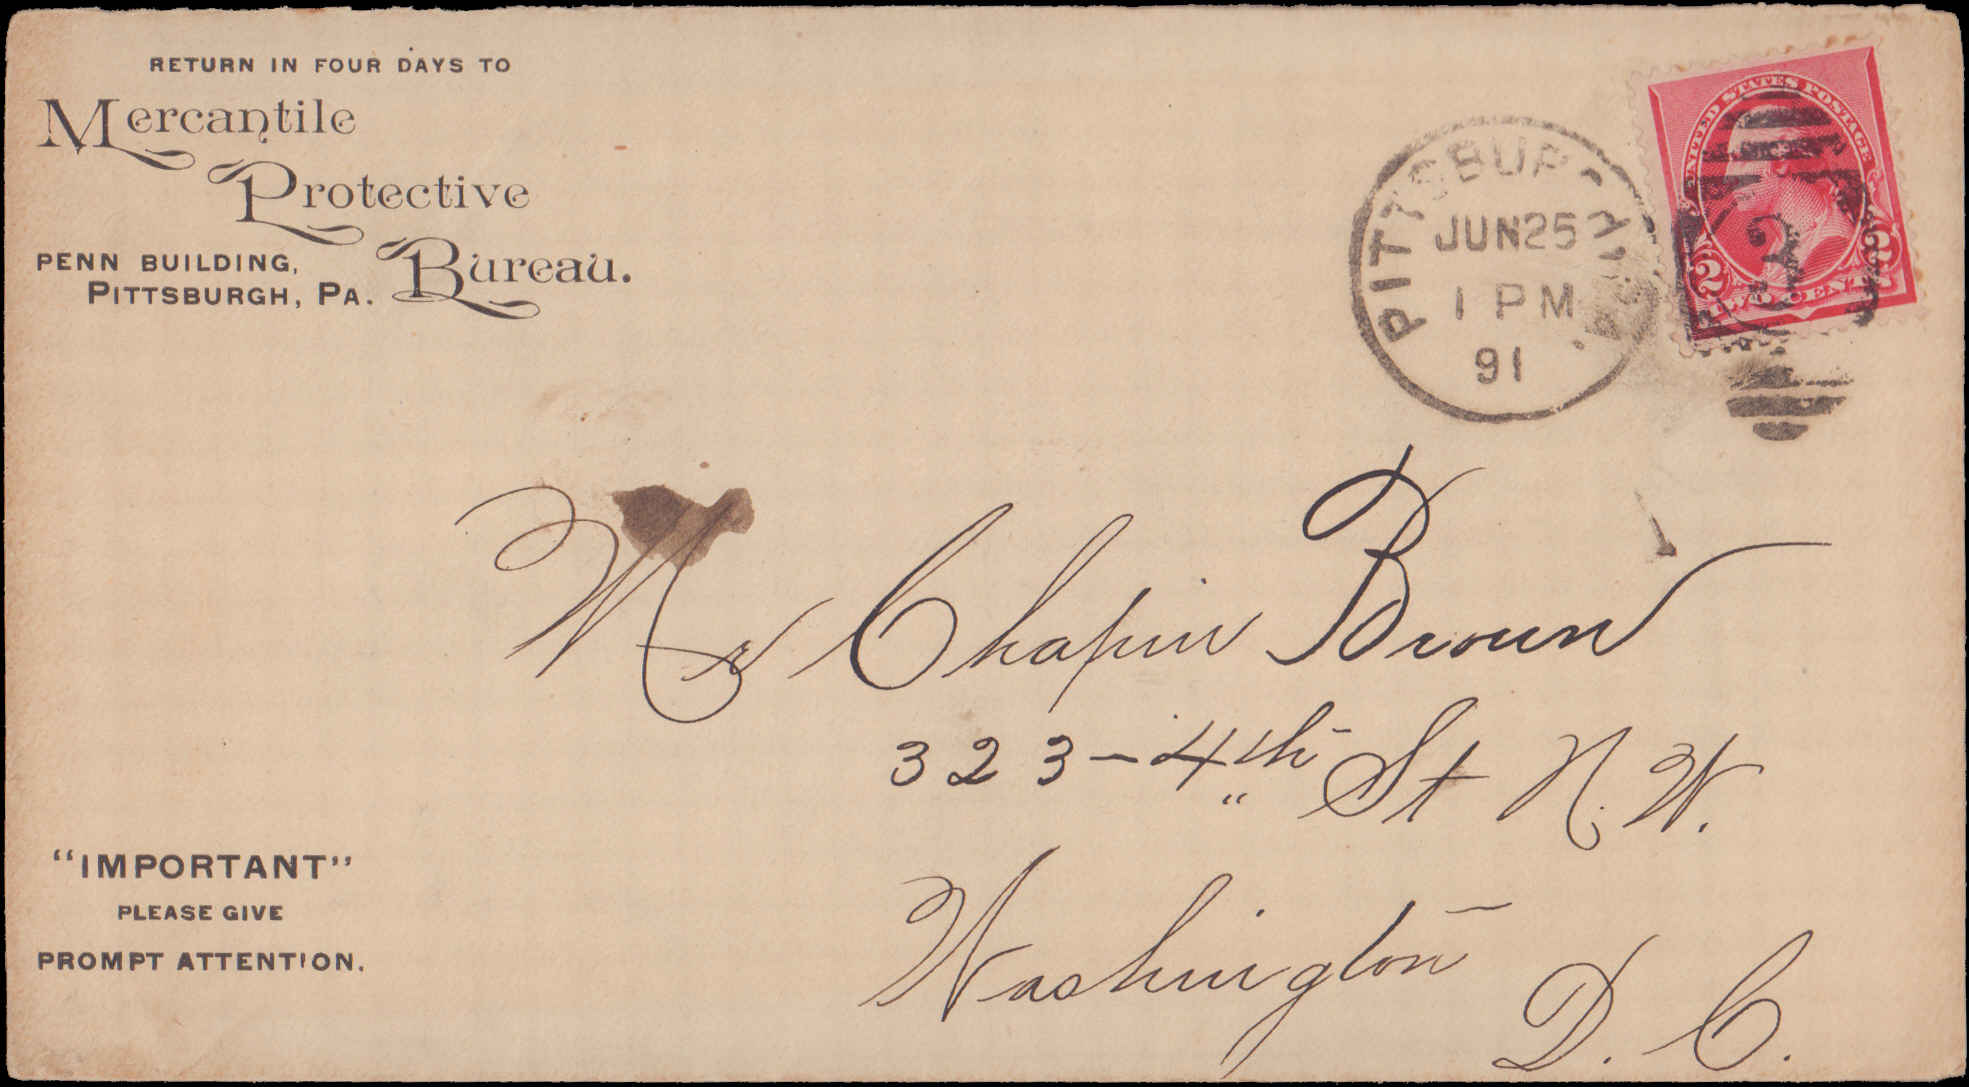 RETURN IN FOUR DAYS TO
Mercantile
Protective
Bureau.
PENN BUILDING,
PITTSBURGH, PA.
PITTSBURG
JUN 25
1 PM
91
UNITED STATES POSTAGE
2 2
TWO CENTS
2
Mr Chapin Brown
323-4th St N.W.
Washington
D.C.
"IMPORTANT"
PLEASE GIVE
PROMPT ATTENTION.